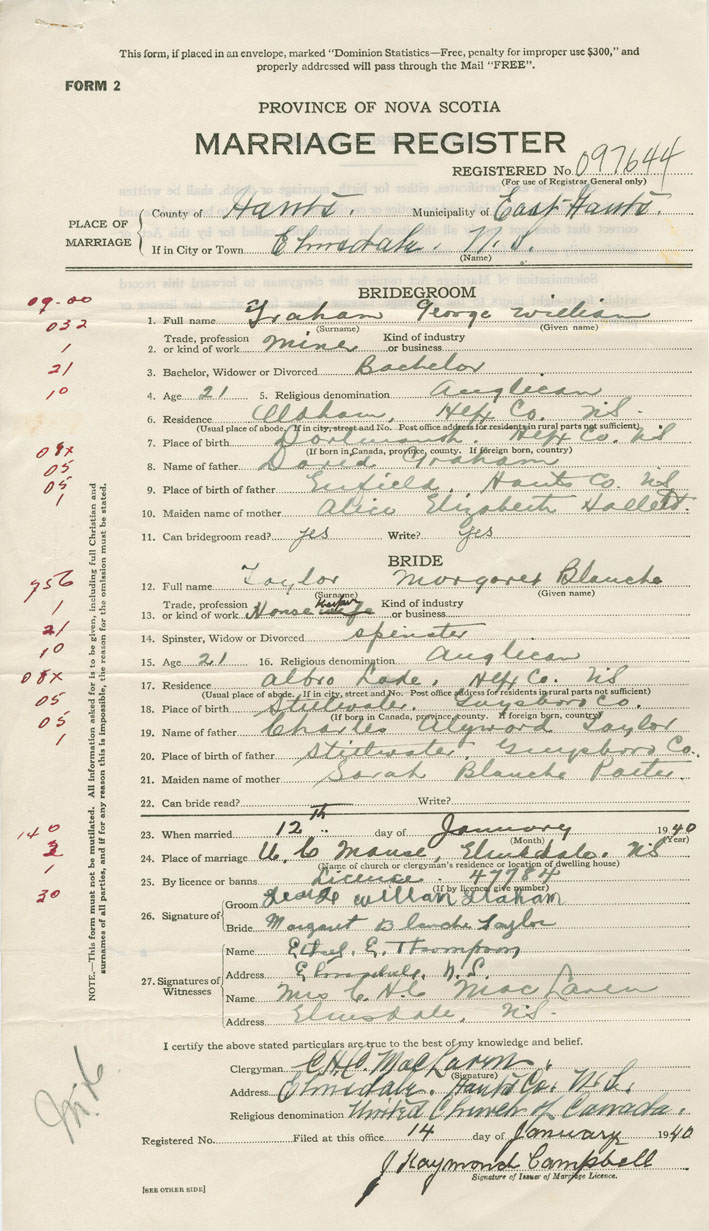 This form, if placed in an envelope, marked "Dominion Statistics—Free, penalty for improper use $300," and
properly addressed will pass through the Mail "FREE".
FORM 2
PROVINCE OF NOVA SCOTIA
MARRIAGE REGISTER
REGISTERED No. 097644
(For use of Registrar General only)
PLACE OF MARRIAGE
County of Hants. Municipality of East Hants.
If in City or Town Elmsdale. N.S.
(Name)
BRIDEGROOM
09-00
1. Full name Graham George William
(Surname) (Given name)
032
Trade, profession Kind of industry
2. or kind of work Miner or business
1
3. Bachelor, Widower or Divorced Bachelor
21
4. Age 21 5. Religious denomination Anglican
10
6. Residence Oldham, Hfx Co. NS.
(Usual place of abode. If in city, street and No. Post office address for residents in rural parts not sufficient)
7. Place of birth Dartmouth. Hfx Co. NS
(If born in Canada, province, county. If foreign born, country)
08x
8. Name of father David Graham
05
9. Place of birth of father Enfield, Hants Co. NS
05
1
10. Maiden name of mother Alice Elizabeth Hallett.
11. Can bridegroom read? yes Write? yes
BRIDE
956
12. Full name Taylor Margaret Blanche
(Surname) (Given name)
1
Trade, profession Kind of industry
13. or kind of work House keeper or business
21
14. Spinster, Widow or Divorced Spinster
10
15. Age 21 16. Religious denomination Anglican
08x
17. Residence Albro Lake, Hfx Co. NS
(Usual place of abode. If in city, street and No. Post office address for residents in rural parts not sufficient)
05
18. Place of birth Stillwater, Guysboro Co.
(If born in Canada, province, county. If foreign born, country)
05
19. Name of father Charles Taylor
1
20. Place of birth of father Stillwater, Guysboro Co.
21. Maiden name of mother Sarah Blanche
22. Can bride read? Write?
140
23. When married 12th day of January 1940
(Month) (Year)
2
24. Place of marriage U.C. Manse, Elmsdale. NS
(Name of church or clergyman's residence or location of dwelling house)
1
25. By licence or banns Licence. 47784
(If by licence give number)
30
26. Signature of
Groom George William Graham
Bride Margaret Blanche Taylor
27. Signatures of Witnesses
Name Ethel E. Thompson
Address Elmsdale, N.S.
Name Mrs C. H.C MacLaren
Address Elmsdale, NS.
I certify the above stated particulars are true to the best of my knowledge and belief.
Clergyman C.H.C. MacLaren.
(Signature)
Address Elmsdale. Hants Co. N.S.
Religious denomination United Church of Canada.
Registered No. Filed at this office 14 day of January 1940
J Raymond Campbell
Signature of Issuer of Marriage Licence.
[SEE OTHER SIDE]
NOTE.—This form must not be mutilated. All information asked for is to be given, including full Christian and
surnames of all parties, and if for any reason this is impossible, the reason for the omission must be stated.